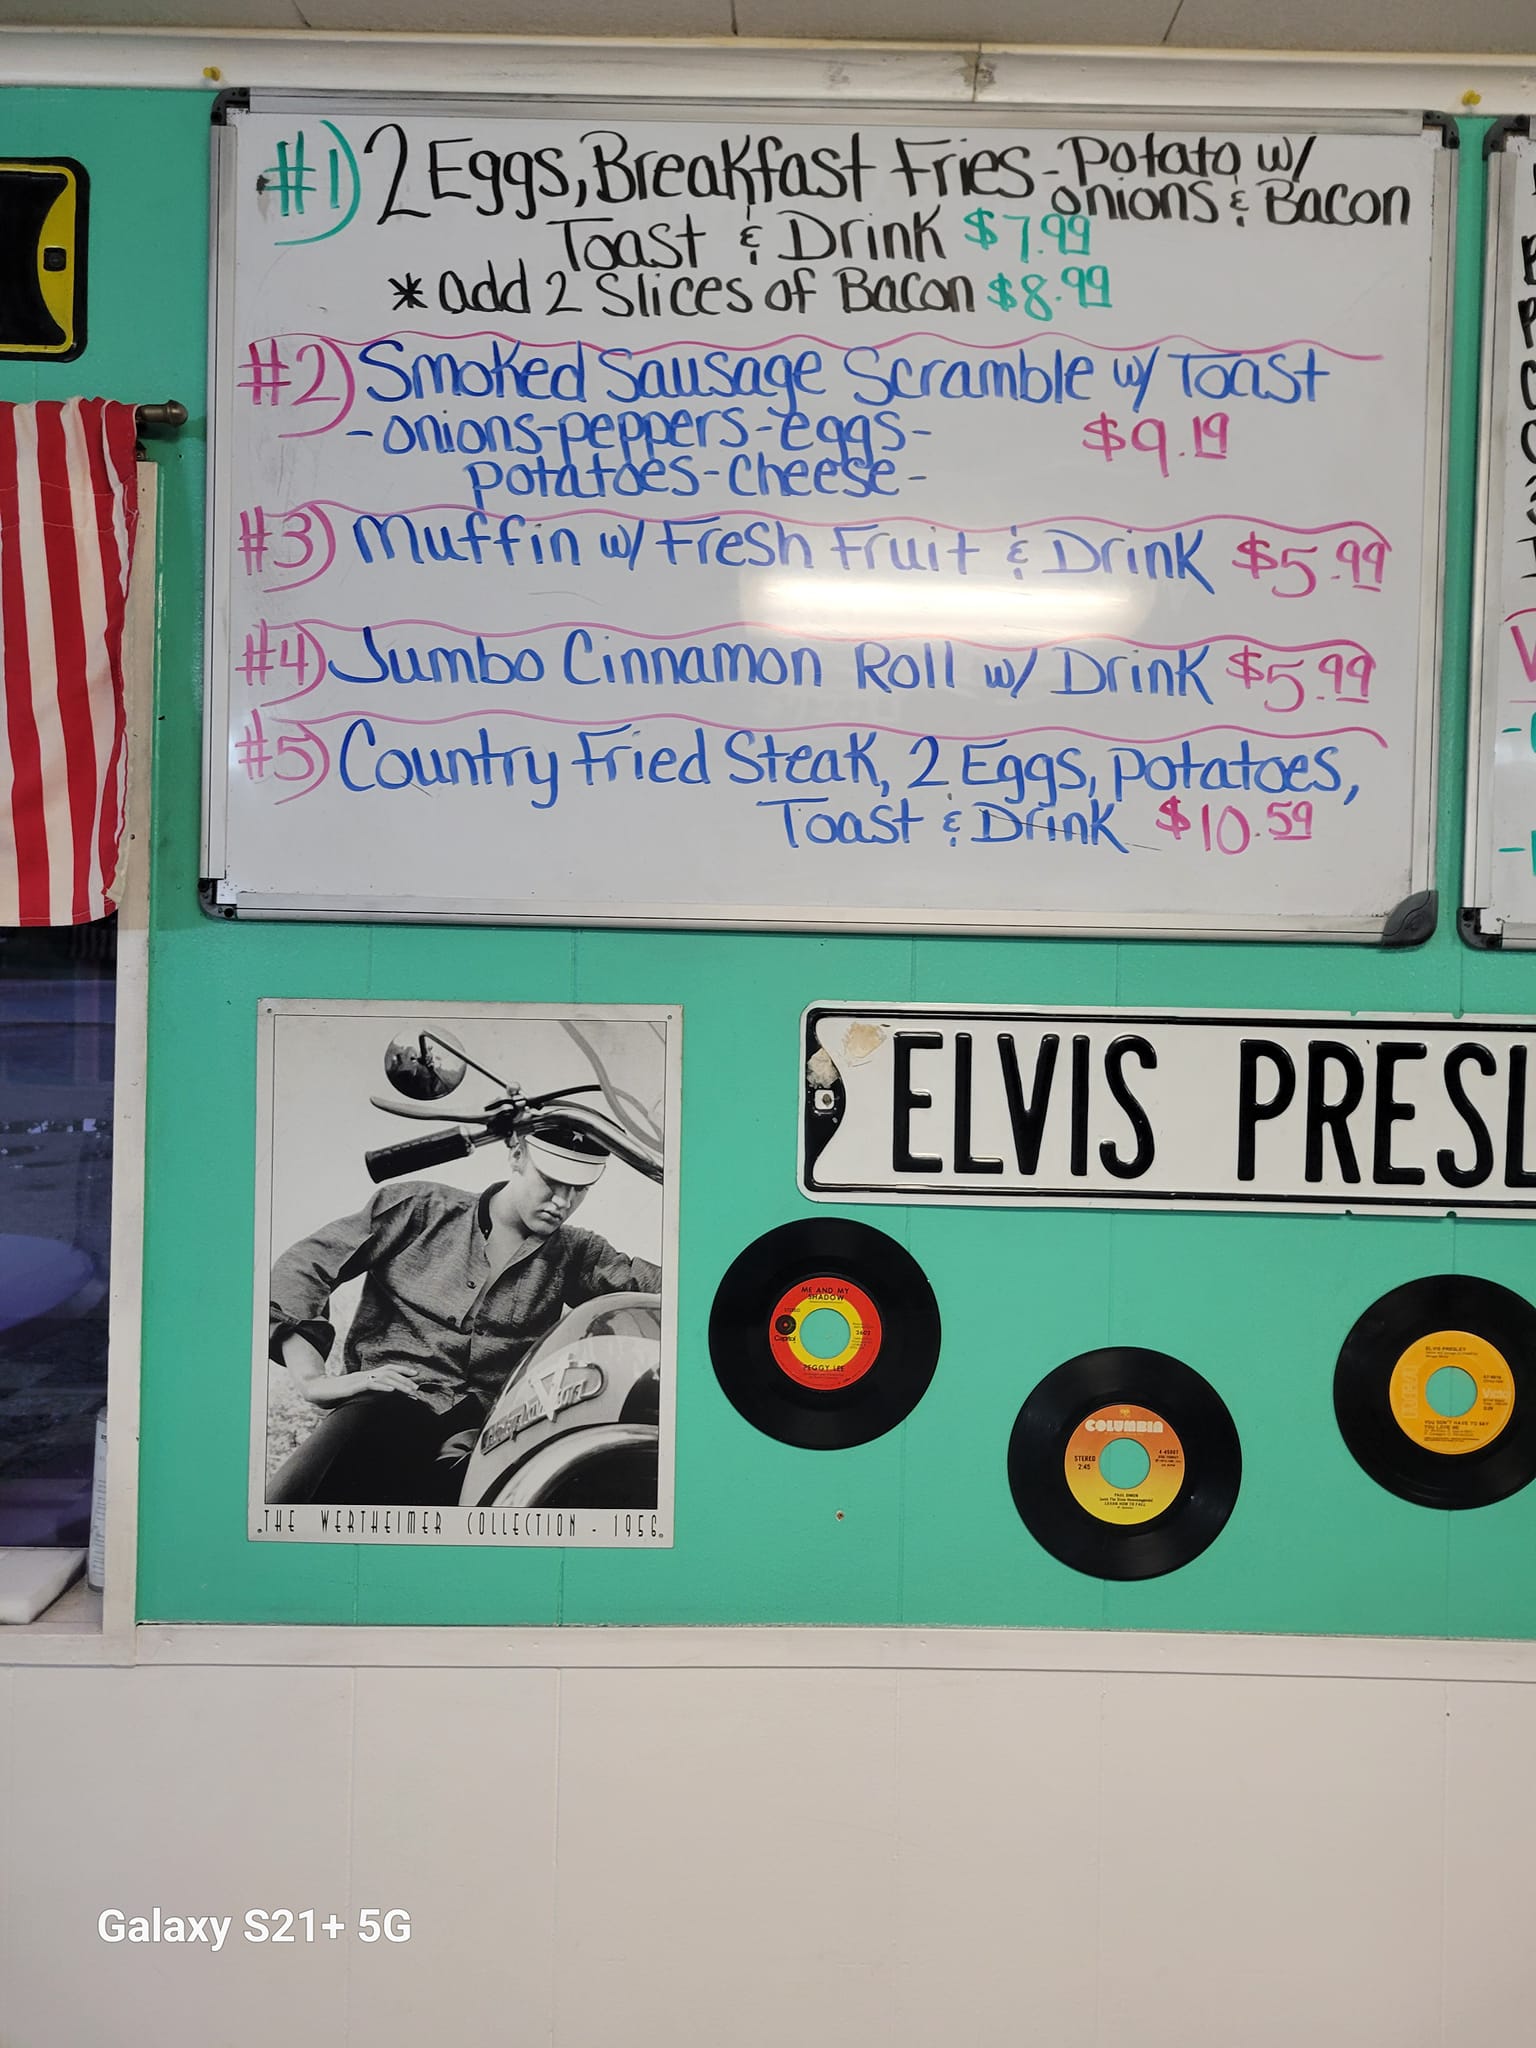 #1) 2 Eggs, Breakfast Fries - Potato w/
onions & Bacon
Toast & Drink $7.99
* add 2 Slices of Bacon $8.99
#2) Smoked Sausage Scramble w/ Toast
- onions - peppers - eggs -
potatoes - Cheese -
$9.19
#3) Muffin w/ Fresh Fruit & Drink $5.99
#4) Jumbo Cinnamon Roll w/ Drink $5.99
#5) Country Fried Steak, 2 Eggs, potatoes,
Toast & Drink $10.59
ELVIS PRESL
THE WERTHEIMER COLLECTION - 1956
ME AND MY
SHADOW
STEREO
Capitol
2602
PEGGY LEE
COLUMBIA
STEREO
2:45
4-45907
PAUL SIMON
LEARN HOW TO FALL
ELVIS PRESLEY
RCA
Victor
YOU DON'T HAVE TO SAY
YOU LOVE ME
Galaxy S21+ 5G